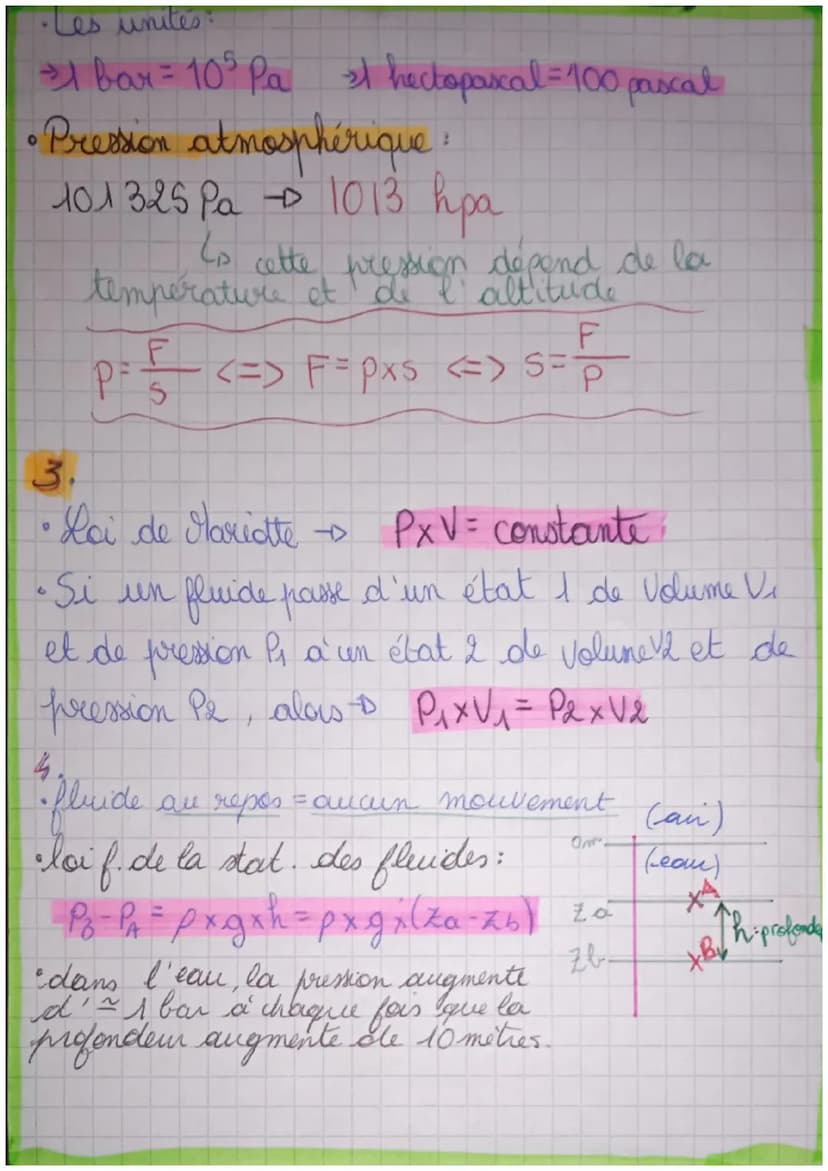 • Les unités:
→ 1 bar = 10⁵ Pa → 1 hectopascal = 100 pascal
• Pression atmosphérique :
101 325 Pa → 1013 hpa
↳ cette pression dépend de la
température et de l'altitude
P = F/S <=> F = P×S <=> S = F/P
3.
• Loi de Mariotte → P×V = constante
• Si un fluide passe d'un état 1 de Volume V1
et de pression P1 à un état 2 de volume V2 et de
pression P2, alors → P1×V1 = P2×V2
4.
• fluide au repos = aucun mouvement
• loi f. de la stat. des fluides :
PB - PA = ρ×g×h = ρ×g×(Za - Zb)
• dans l'eau, la pression augmente
d' ≃ 1 bar à chaque fois que la
profondeur augmente de 10 mètres.
(air)
0m
(eau)
Za
×A
h = profonde
Zb
×B